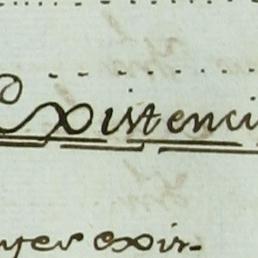 Existenci
yer exis-